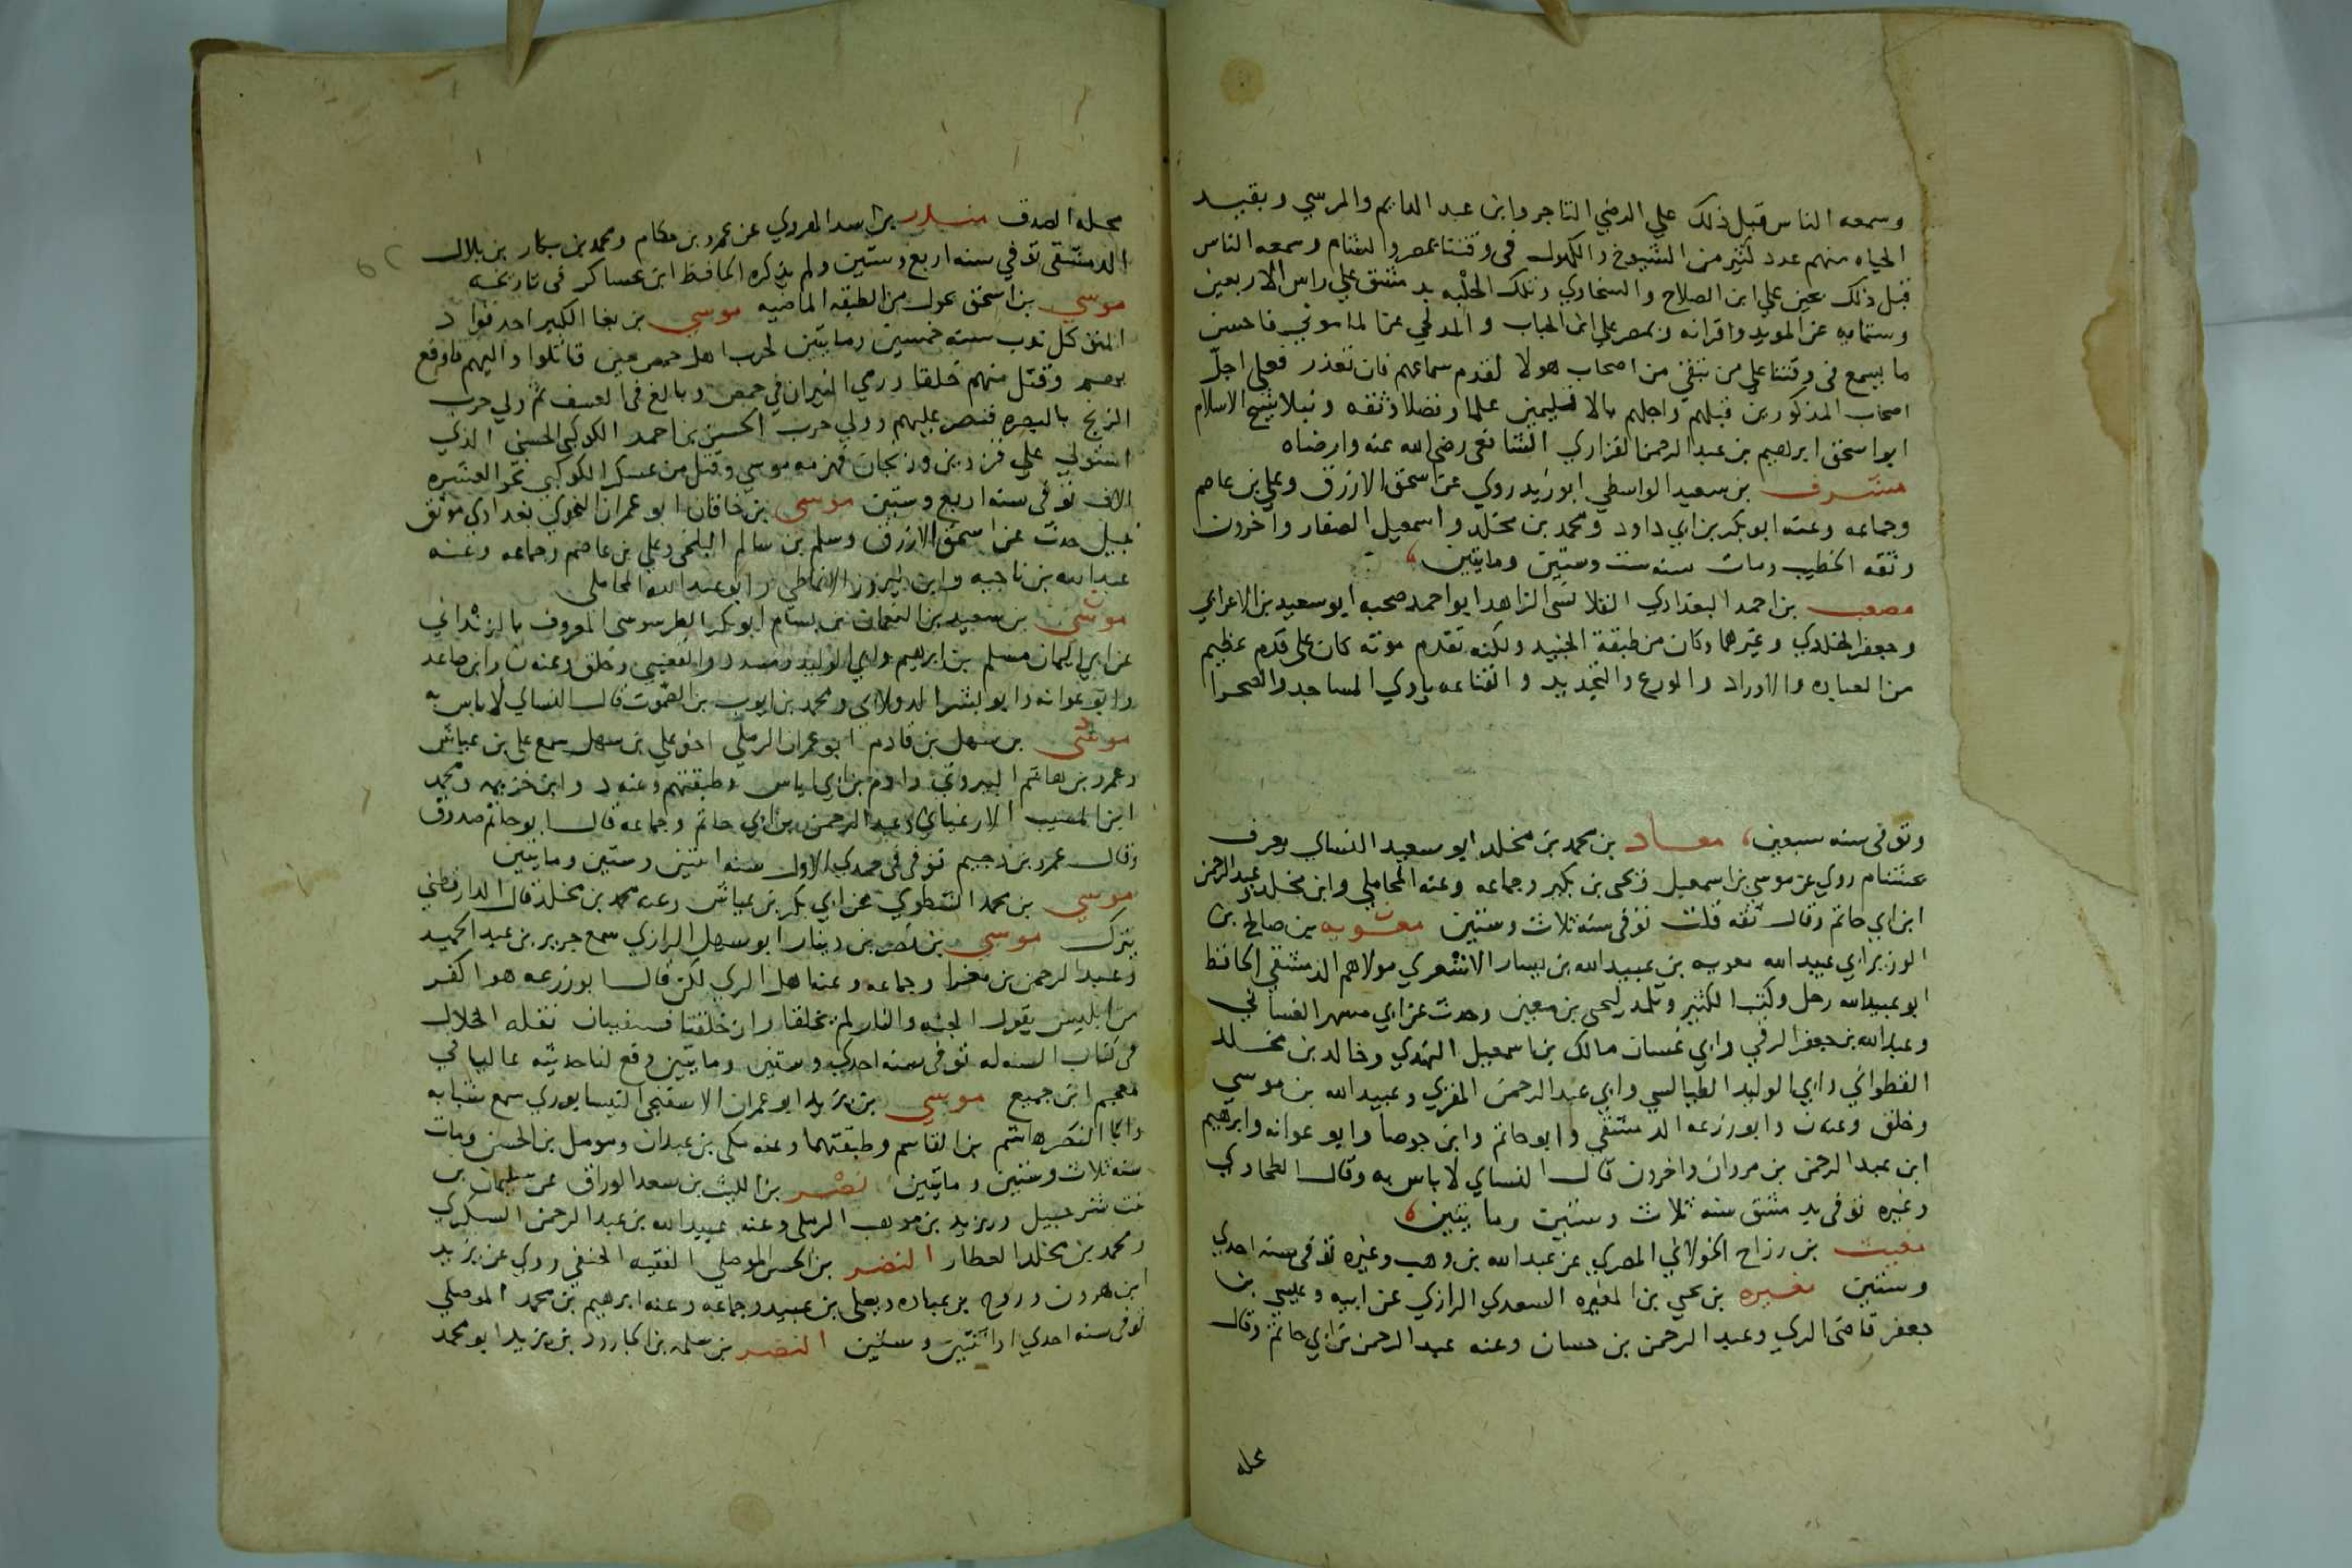 وسمعه الناس قبل ذلك علي الرضي التاجر وابن عبد الدايم والمرسي وبقيد
الحياه منهم عدد كثير من الشيوخ والكهول في وقتنا بمصر والشام وسمعه الناس
قبل ذلك علي ابن الصلاح والسخاوي وتلك الحلبه بدمشق علي راس الاربعين
وستمايه عن المويد واقرانه وبمصر علي ابن الحباب والمدلجي عن الماموني فاحسن
ما يسمع في وقتنا علي من بقي من اصحاب هولا لقدم سماعهم فان تعذر فعلي اجل
اصحاب المذكورين قبلهم واجلهم علما وفضلا وثقه ونبلا شيخ الاسلام
ابو اسحق ابرهيم بن عبد الرحمن الفزاري الشافعي رضي الله عنه وارضاه
مشرف بن سعيد الواسطي ابو زيد روي عن اسحق الازرق وعلي بن عاصم
وجماعه وعنه ابو بكر بن ابي داود ومحمد بن مخلد واسمعيل الصفار واخرون
وثقه الخطيب ومات سنه ست وستين ومايتين
مصعب بن احمد البغدادي القلانسي الزاهد ابو احمد صحبه ابو سعيد بن الاعرابي
وجعفر الخلدي وغيرهما وكان من طبقة الجنيد ولكنه تقدم موته كان علي قدم عظيم
من العباده والاوراد والورع والتجريد والقناعه ياوي المساجد والصحرا
وتوفي سنه سبعين معاد بن محمد بن مخلد ابو سعيد النساي يعرف
بخشنام روي عن موسي بن اسمعيل ويحيي بن بكير وجماعه وعنه المحاملي وابن مخلد وعبد الرحمن
ابن ابي حاتم وقال ثقه قلت توفي سنه ثلاث وستين معويه بن صالح بن
الوزير ابي عبيد الله معويه بن عبيد الله بن يسار الاشعري مولاهم الدمشقي الحافظ
ابو عبيد الله رحل وكتب الكثير وتلمذ ليحيي بن معين وحدث عن ابي مسهر الغساني
وعبد الله بن جعفر الرقي وابي غسان مالك بن اسمعيل النهدي وخالد بن مخلد
القطواني وابي الوليد الطيالسي وابي عبد الرحمن المقري وعبيد الله بن موسي
وخلق وعنه ن وابو زرعه الدمشقي وابو حاتم وابن جوصا وابو عوانه وابرهيم
ابن عبد الرحمن بن مروان واخرون قال النساي لا باس به وقال الطحاوي
وغيره توفي بدمشق سنه ثلاث وستين ومايتين
مغيث بن رزاح الخولاني المصري عن عبد الله بن وهب وغيره توفي سنه احدي
وستين مغيره بن يحيي بن المغيره السعدي الرازي عن ابيه وعيسي بن
جعفر قاضي الري وعبد الرحمن بن حسان وعنه عبد الرحمن بن ابي حاتم وقال
محله
محله الصدق منذر بن اسد المروي عن عمرو بن مكام ومحمد بن بكار بن بلال
الدمشقي توفي سنه اربع وستين ولم يذكره الحافظ ابن عساكر في تاريخه
موسي بن اسحق حول من الطبقه الماضيه موسي بن بغا الكبير احد قواد
المتوكل ندب سنه خمسين ومايتين لحرب اهل حمص حين قاتلوا واليهم فاوقع
بهم وقتل منهم خلقا ورمي النيران في حمص وبالغ في العسف ثم ولي حرب
الزنج بالبصره فنصر عليهم وولي حرب الحسين بن احمد الكوكبي الحسني الذي
استولي علي قزوين وزنجان فهزمه موسي وقتل من عسكر الكوكبي نحو العشره
الاف توفي سنه اربع وستين موسي بن خاقان ابو عمران النحوي بغدادي موثق
نبيل حدث عن اسحق الازرق وسلم بن سالم البلخي وعلي بن عاصم وجماعه وعنه
عبد الله بن ناجيه وابن نيروز الانماطي وابو عبد الله المحاملي
موسي بن سعيد بن النعمان بن بسام ابو بكر الطرسوسي المعروف بالدنداني
عن ابي اليمان ومسلم بن ابرهيم وابي الوليد ومسدد والقعنبي وخلق وعنه ن وابن صاعد
وابو عوانه وابو بشر الدولابي ومحمد بن ايوب بن الصموت قال النساي لا باس به
موسي بن سهل بن قادم ابو عمران الرملي اخو علي بن سهل سمع علي بن عياش
وعمرو بن هاشم البيروتي وادم بن ابي اياس وطبقتهم وعنه د وابن خزيمه ومحمد
ابن المسيب الارغياني وعبد الرحمن بن ابي حاتم وجماعه قال ابو حاتم صدوق
وقال عمرو بن دحيم توفي في جمدي الاول سنه اثنتين وستين ومايتين
موسي بن محمد الشطوي عن ابي بكر بن عياش وعنه محمد بن مخلد قال الدارقطني
يترك موسي بن نصر بن دينار ابو سهل الرازي سمع جرير بن عبد الحميد
وعبد الرحمن بن مغرا وجماعه وعنه اهل الري لكن قال ابو زرعه هو اكفر
من ابليس يقول الجنه والنار لم يخلقا وان خلقتا فسيفنيان نقله الخلال
في كتاب السنه له توفي سنه احدي وستين ومايتين وقع لنا حديثه عاليا في
معجم ابن جميع موسي بن يزيد ابو عمران الاسفنجي النيسابوري سمع شبابه
وابا النضر هاشم بن القاسم وطبقتهما وعنه مكي بن عبدان ومومل بن الحسن ومات
سنه ثلاث وستين ومايتين نصر بن الليث بن سعد الوراق عن سليمان بن
بنت شرحبيل ويزيد بن موهب الرملي وعنه عبيد الله بن عبد الرحمن السكري
ومحمد بن مخلد العطار النضر بن الحسن الموصلي الفقيه الحنفي روي عن يزيد
ابن هرون وروح بن عباده ويعلي بن عبيد وجماعه وعنه ابرهيم بن محمد الموصلي
توفي سنه احدي او اثنتين وستين النضر بن سلمه بن الجارود بن يزيد ابو محمد